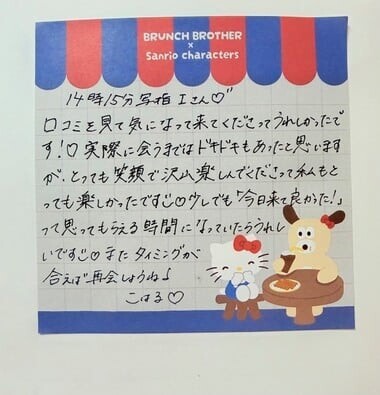 BRUNCH BROTHER
×
Sanrio characters
14時15分写指 Iさん♡
口コミを見て気になって来てくださってうれしかったで
す!♡実際に会うまではドキドキもあったと思います
が、とっても笑顔で沢山楽しんでくださって私もと
っても楽しかったです♡少しでも「今日来て良かった!」
って思ってもらえる時間になっていたらうれし
いです♡またタイミングが
合えば再会しようね♪
こはる♡